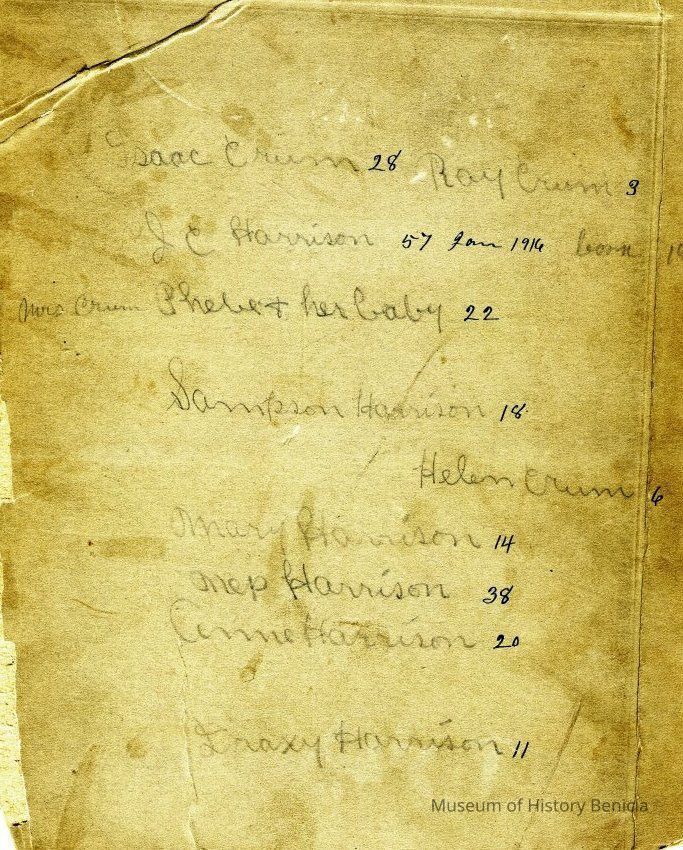 Isaac Crum 28 Ray Crum 3
J C Harrison 57 Jan 1916 born
Mrs Crum Phebe & her baby 22
Sampson Harrison 18
Helen Crum 6
Mary Harrison 14
Harrison 38
Harrison 20
Harrison 11
Museum of History Benicia